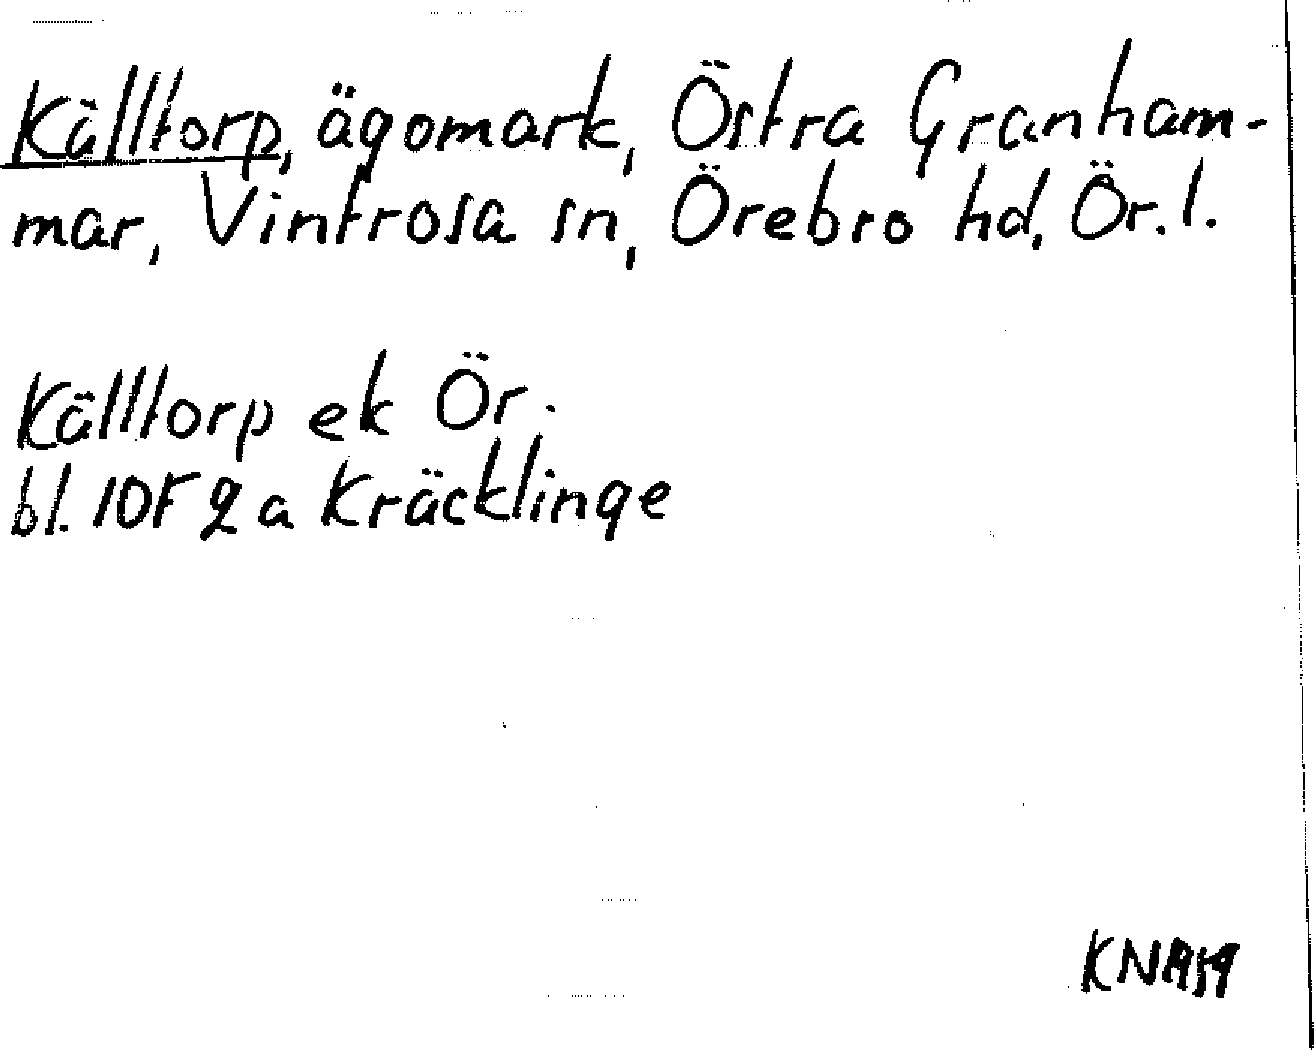 Källtorp, ägomark, Östra Granham-
mar, Vintrosa sn, Örebro hd, Ör. l.
Källtorp ek Ör.
bl. 10F 2 a Kräcklinge